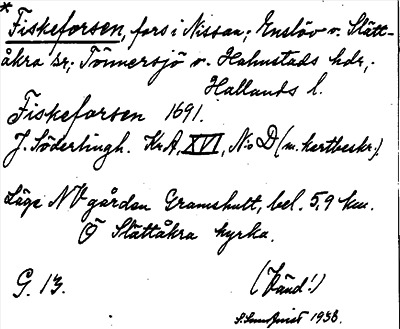 * Fiskeforsen, fors i Nissan; Enslöv o. Slätt-
åkra sr; Tönnersjö o. Halmstads hdr,
Hallands l.
Fiskeforsen 1691.
J. Söderlingh. KrA, XVI, N:o D (m. kartbeskr.).
Läge NV gården Gramshult, bel. 5,9 km.
Ö Slättåkra kyrka.
G. 13. (Vänd!)
1938.